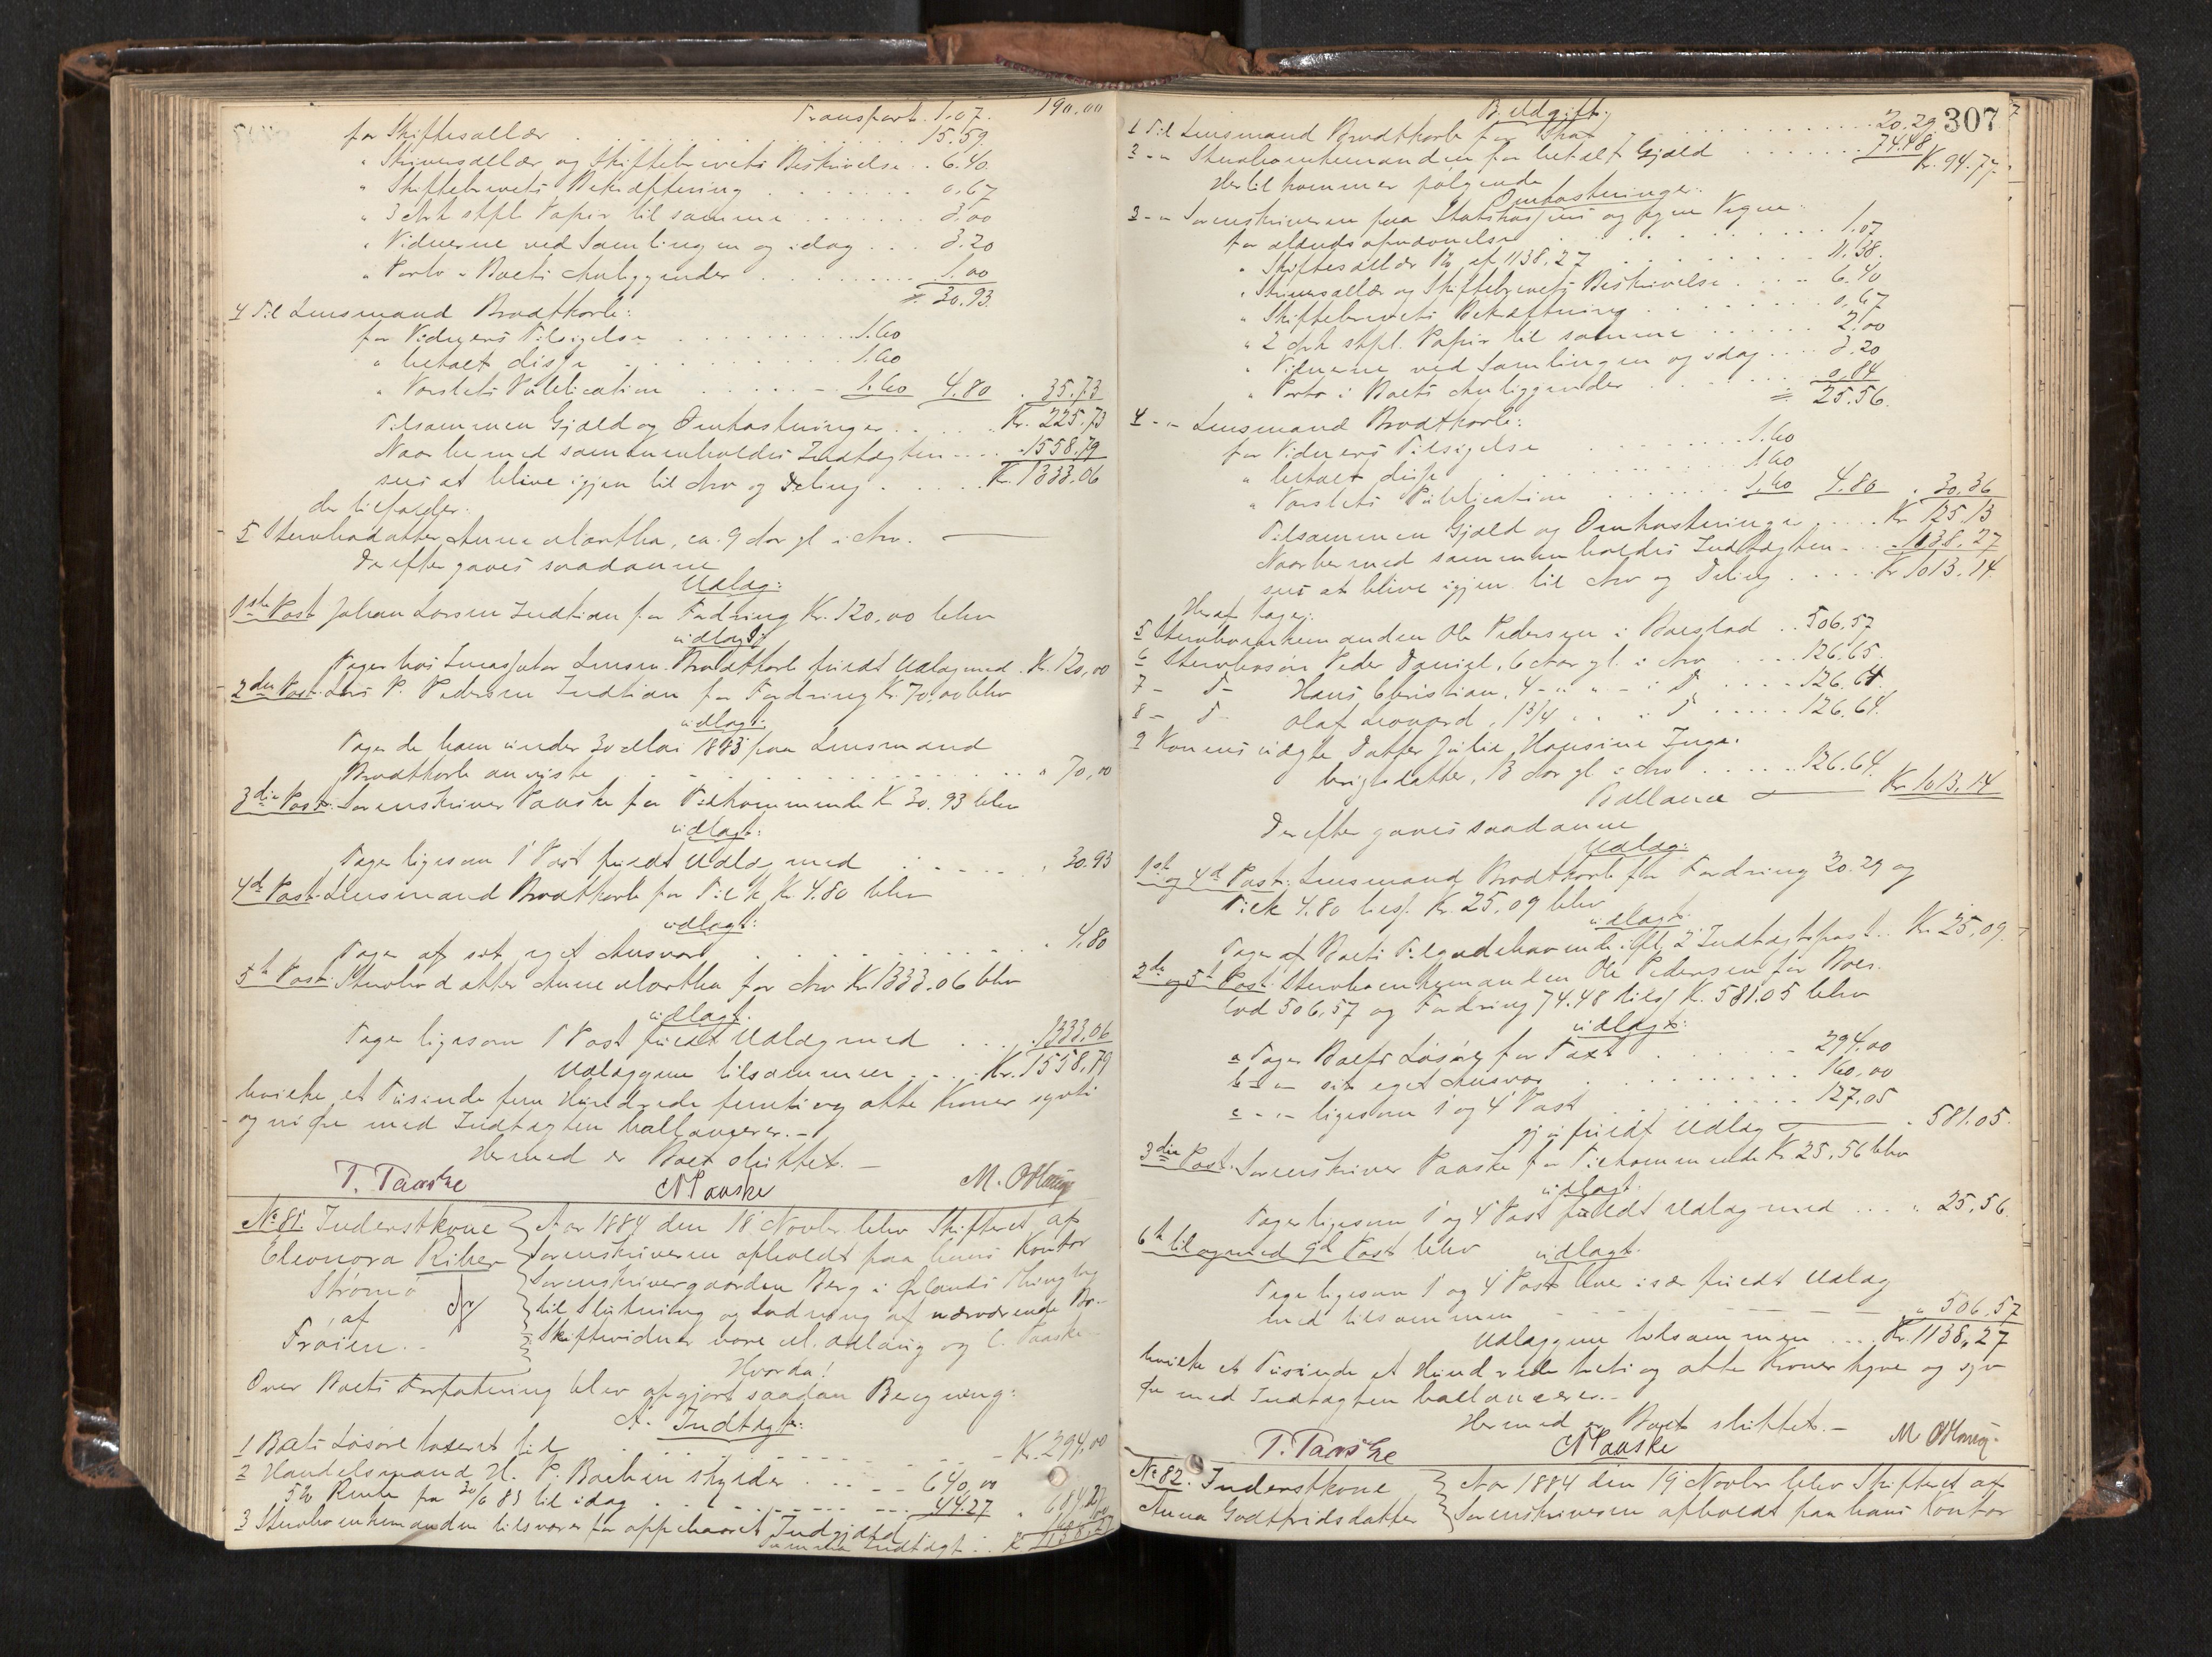 Transport. 1.07. 190.00
for Skiftesallær . . . 15.59.
" Skriversallær og Skiftebrevets Beskrivelse . . 6.40.
" Skiftebrevets Bekræftning . . . 0.67
" 3 Ark stpl. Papir til samme . . . 3.00
" Vidnerne ved Samlingen og idag . . . 3.20
" Porto i Boets Anliggender . . . 1.00
" 30.93.
4 Til Lensmand Brodtkorb:
for Vidners Tilsigelse . . . 1.60
" betalt disse . . . 1.60
" Varslets Publication . . . 1.60 4.80 . 35.73
Tilsammen Gjæld og Omkostninger . . . Kr. 225.73
Naar hermed sammenholdes Indtægten . . . 1558.79
sees at blive igjen til Arv og Deling . . . Kr. 1333.06
der tilfalder:
5 Stervbodatter Anne Martha, ca. 9 Aar gl. i Arv.
Derefter gaves saadanne
Udlæg:
1ste Post Johan Larsen Indtian for Fordring Kr. 120.00 blev
udlagt:
Tager hos Incassator Lensm. Brodtkorb friedt Udlæg med . Kr. 120,00
2den Post. Lars P. Pedersen Indtian for Fordring Kr. 70,00 blev
udlagt:
Tager de ham under 30 Mai 1883 paa Lensmand
Brodtkorb anviste . . . " 70,00
3die Post: Sorenskriver Paaske for Tilkommende Kr. 30.93 blev
udlagt:
Tager ligesom 1' Post friedt Udlæg med . . . " 30.93
4de Post. Lensmand Brodtkorb for Tilk. Kr. 4.80 blev
udlagt:
Tager af sit eget Ansvar . . . " 4.80
5te Post. Stervbodatter Anne Martha for Arv Kr. 1333.06 blev
udlagt.
Tager ligesom 1' Post friedt Udlæg med . . . 1333.06
Udlæggene tilsammen . . . Kr. 1558.79
hvilke et Tusinde fem Hundrede femti og otte Kroner sytti
og ni Øre med Indtægten ballancerer. -
Hermed er Boet sluttet. -
T. Paaske C Paaske M. OHaug
No 81. Inderstkone
Eleonora Riber
Strømø
af
Froien. -
Aar 1884 den 18' Novbr blev Skifteret af
Sorenskriveren afholdt paa hans Kontor
Sorenskrivergaarden Berg i Ørlands Thinglag
til Slutning og Lodning af nærværende Bo. -
Skiftevidner vare M. Ohaug og C. Paaske
Hvorda!
Over Boets Forfatning blev afgjort saadan Beregning:
A. Indtægt:
1 Boets Løsøre taxeret til . . . Kr. 294,00
2 Handelsmand H. P. Bochen skylder . . . 640,00
5% Rente fra 30/6 83 til idag . . . 44.27 " 684.27
3 Stervboenkemanden tilsvarer for oppebaaret Indgjæld . . . 160,00
Summa Indtægt . . Kr. 1138,27
307
B. Udgift:
1 Til Lensmand Brodtkorb for Skat . . . 20.29
2 - " Stervboenkemanden for betalt Gjæld . . . 74.48 Kr. 94.77.
Hertil kommer følgende
Omkostninger:
3 - " Sorenskriveren paa Statskassens og egne Vegne:
for Anmeldelse . . . 1.07
" Skiftesallær 1% af 1138.27 . . . 11.38.
" Skriversallær og Skiftebrevets Beskrivelse . . . 6.40
" Skiftebrevets Bekræftning . . . 0.67
" 2 Ark stpl. Papir til samme . . . 2.00
" Vidnerne ved Samlingen og idag . . . 3.20
" Porto i Boets Anliggender . . . 0.84
" 25.56.
4 - " Lensmand Brodtkorb:
for Vidners Tilsigelse . . . 1.60
" betalt disse . . . 1.60
" Varslets Publication . . . 1.60 4.80 . 30.36
Tilsammen Gjæld og Omkostninger . . . Kr. 125.13
Naar hermed sammenholdes Indtægten . . . 1138.27
sees at blive igjen til Arv og Deling . . . Kr. 1013.14.
Heraf tager:
5 Stervboenkemanden Ole Pedersen i Boeslod . . 506.57
6 Stervbosøn Peder Daniel, 6 Aar gl. i Arv . . . 126.65.
7 - D - Hans Christian, 4 - " - i D . . . 126.64.
8 - D - Olaf Leonard, 1 3/4 " " i D . . . 126.64.
9 Konens uægte Datter Julie Hansine Inge-
brigtsdatter, 13 Aar gl. i Arv . . . 126.64.
Ballance Kr. 1013.14
Derefter gaves saadanne
Udlæg:
1ste og 4de Post: Lensmand Brodtkorb for Fordring 20.29 og
Tilk. 4.80 tils. Kr. 25.09 blev
udlagt:
Tager af Boets Tilgodehavende ifl. 2' Indtægtspost . . Kr. 25,09.
2den og 5te Post. Stervboenkemanden Ole Pedersen for Boes-
lod 506,57 og Fordring 74.48 tils. Kr. 581.05 blev
udlagt:
a Tager Boets Løsøre for Taxt . . . 294.00
b - " sit eget Ansvar . . . 160,00
c - " ligesom 1' og 4' Post . . . 127.05
friedt Udlæg " 581.05.
3die Post. Sorenskriver Paaske for Tilkommende Kr. 25.56 blev
udlagt:
Tager ligesom 1' og 4' Post friedt Udlæg med . . . " 25,56.
6te til og med 9de Post blev udlagt:
Tage ligesom 1' og 4' Post hver især friedt Udlæg
med tilsammen . . . " 506.57
Udlæggene tilsammen . . . Kr. 1138,27
hvilke et Tusinde et Hundrede treti og otte Kroner tyve og syv
Øre med Indtægten ballancerer. -
Hermed er Boet sluttet. -
T. Paaske C Paaske M OHaug.
No 82. Inderstkone
Anna Godtfridsdatter
Aar 1884 den 19' Novbr blev Skifteret af
Sorenskriveren afholdt paa hans Kontor